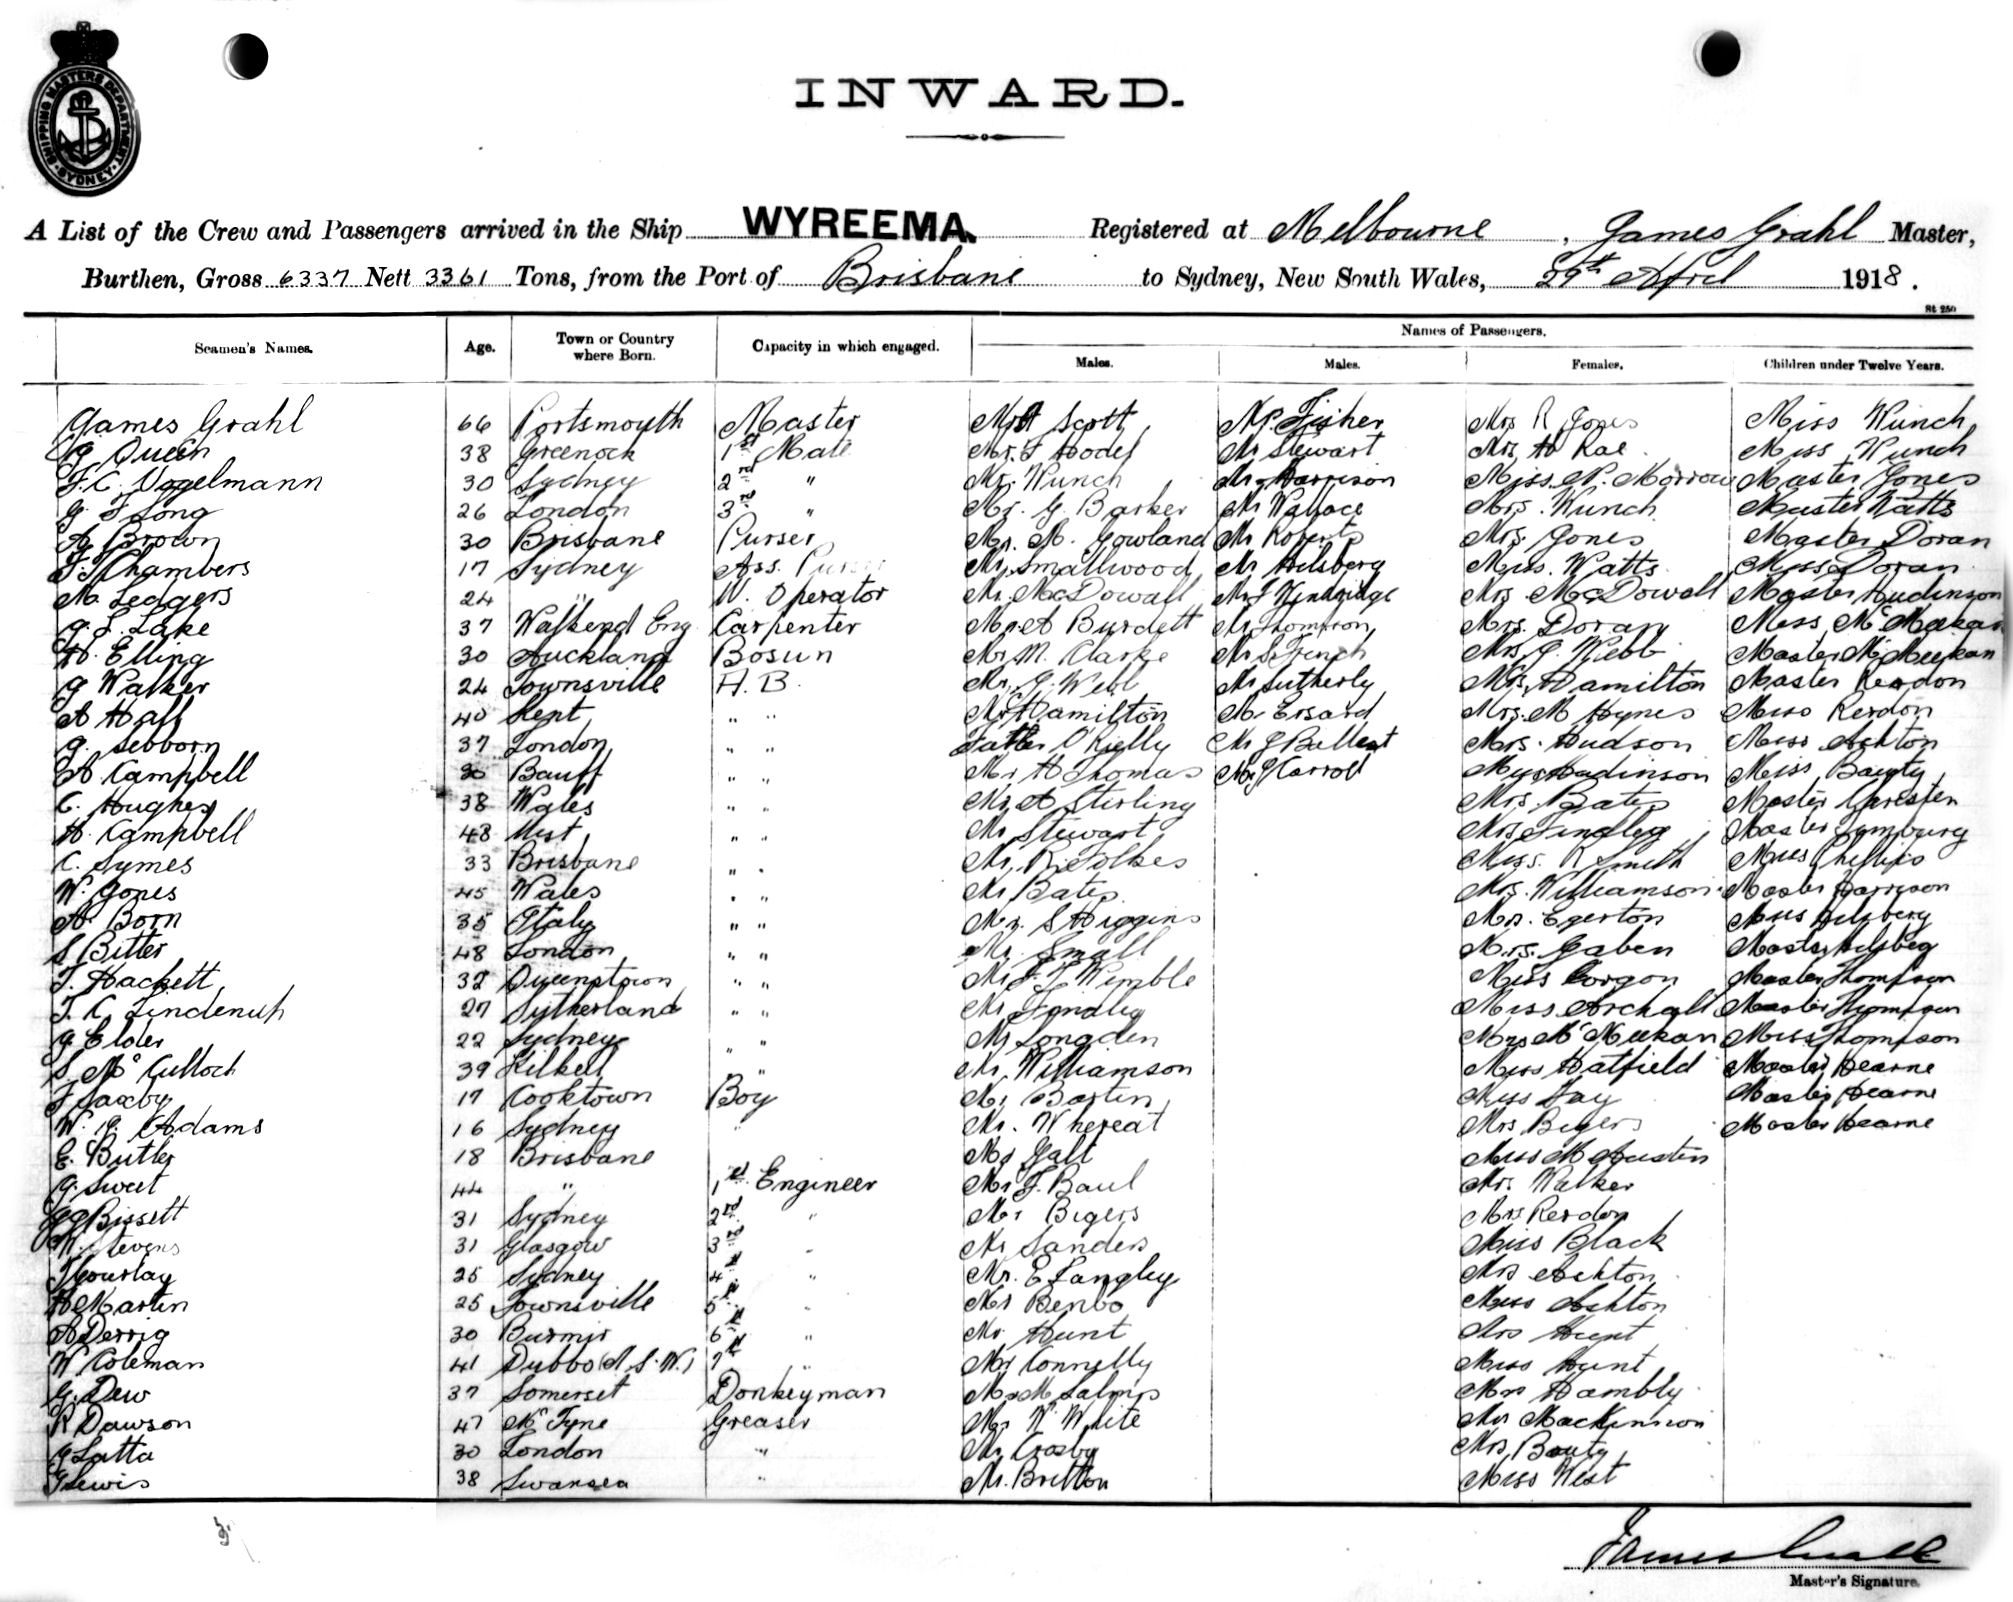 SHIPPING MASTERS DEPARTMENT
SYDNEY
INWARD.
A List of the Crew and Passengers arrived in the Ship WYREEMA. Registered at Melbourne, James Grahl Master,
Burthen, Gross 6337 Nett 3361 Tons, from the Port of Brisbane to Sydney, New South Wales, 29th April 1918.
St 250
Names of Passengers.
Seamen's Names. Age. Town or Country where Born. Capacity in which engaged. Males. Males. Females. Children under Twelve Years.
James Grahl 66 Portsmouth Master Mr A Scott Mr Fisher Mrs R Jones Miss Wunch
Queen 38 Greenock 1st Mate Mr. F Hodel Mr Stewart Mrs H Rae Miss Wunch
F. C. Vogelmann 30 Sydney 2nd " Mr. Wunch Mr Harrison Miss N. Morrow Master Jones
G. F Long 26 London 3rd " Mr. G. Barker Mr Wallace Mrs. Wunch Master Watts
A Brown 30 Brisbane Purser Mr. M. Gowland Mr Roberts Mrs. Jones Master Doran
Chambers 17 Sydney Ass. Purser Mr Smallwood Mr Hilsberg Miss. Watts Miss Doran
N. Leggers 24 " W. Operator Mr. MacDowall Mr F Windridge Mrs McDowall Master Hudinson
G. F. Lake 37 Wallsend Eng Carpenter Mr. A Burdett Mr Thompson Mrs. Doran Miss McMeekan
H. Elling 30 Auckland Bosun Mr M. Clarke Mr S. Finch Mrs. G. Webb Master McMeekan
G Walker 24 Townsville A. B. Mr. G. Webb Mr Sutherly Mrs. Hamilton Master Reardon
A Hall 40 Kent " " Mr Hamilton Mr Ersard Mrs. M Hynes Miss Reardon
G. Sebborn 37 London " " Father O'Rielly Mr J Ballent Mrs. Hudson Miss Ashton
A Campbell 30 Banff " " Mr H Thomas Mr J Carroll Mrs Hudinson Miss Bauty
C. Hughes 38 Wales " " Mr A Stirling Mrs. Bates Master Garesten
H. Campbell 48 Uist " " Mr Stewart Mrs Findley Master
C. Symes 33 Brisbane " " Mr. R. Folkes Miss. R Smith Miss Phillips
W. Jones 45 Wales " " Mr Bates Mrs. Williamson Master Harrison
A. Born 35 Italy " " Mr. S Higgins Mrs. Egerton Miss Hilsberg
S Bitter 48 London " " Mr. Small Mrs. Gaben Master Hilsberg
T. Hackett 32 Queenstown " " Mr F. F Wimble Miss Corgon Master Thompson
T. C. Lindenup 27 Sutherland " " Mr Findley Miss Archall Master Thompson
G Elder 22 Sydney " " Mr Longden Mrs McMeekan Miss Thompson
S. McCulloch 39 Kilkeel " Mr. Williamson Miss Hatfield Master Hearne
F Saxby 17 Cooktown Boy Mr Bartin Miss Fay Master Hearne
W. G. Adams 16 Sydney " Mr. Whereat Mrs Bigers Master Hearne
E. Butler 18 Brisbane " Mr Galt Miss M Austin
G. Sweet 44 " 1st Engineer Mr F. Baul Mrs. Walker
Bissett 31 Sydney 2nd " Mr Bigers Mrs Reardon
Stevens 31 Glasgow 3rd " Mr Sanders Miss Black
Gourlay 25 Sydney 4th " Mr. E Langley Mrs Ashton
H Martin 25 Townsville 5th " Mr Benbo Miss Ashton
A Derrig 30 6th " Mr. Hunt Mrs Hunt
W Coleman 41 Dubbo (N. S. W.) 7th " Mr Connelly Miss Hunt
G. Dew 37 Somerset Donkeyman Mr M Salmis Mrs Hambly
R Dawson 47 N. Tyne Greaser Mr W White Mrs MacKinnon
G Latta 30 London " Mr Crosby Mrs. Bauty
Lewis 38 Swansea " Mr. Britton Miss West
James Grahl
Master's Signature.